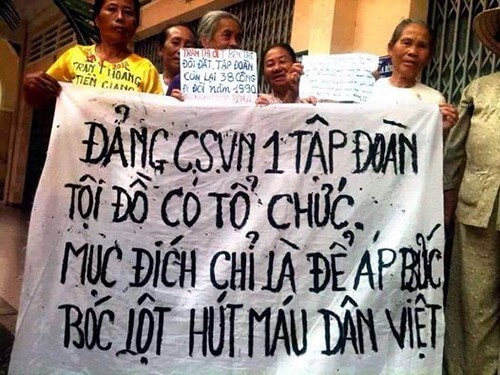 TRẦN HOÀNG
TIỀN GIANG
TRẦN THỊ
ĐÒI ĐẤT, TẬP ĐOÀN
CÒN LẠI 38 CÔNG
Ở ĐỘI NĂM 1990
ĐẢNG C.S.VN 1 TẬP ĐOÀN
TỘI ĐỒ CÓ TỔ CHỨC.
MỤC ĐÍCH CHỈ LÀ ĐỂ ÁP BỨC
BÓC LỘT HÚT MÁU DÂN VIỆT